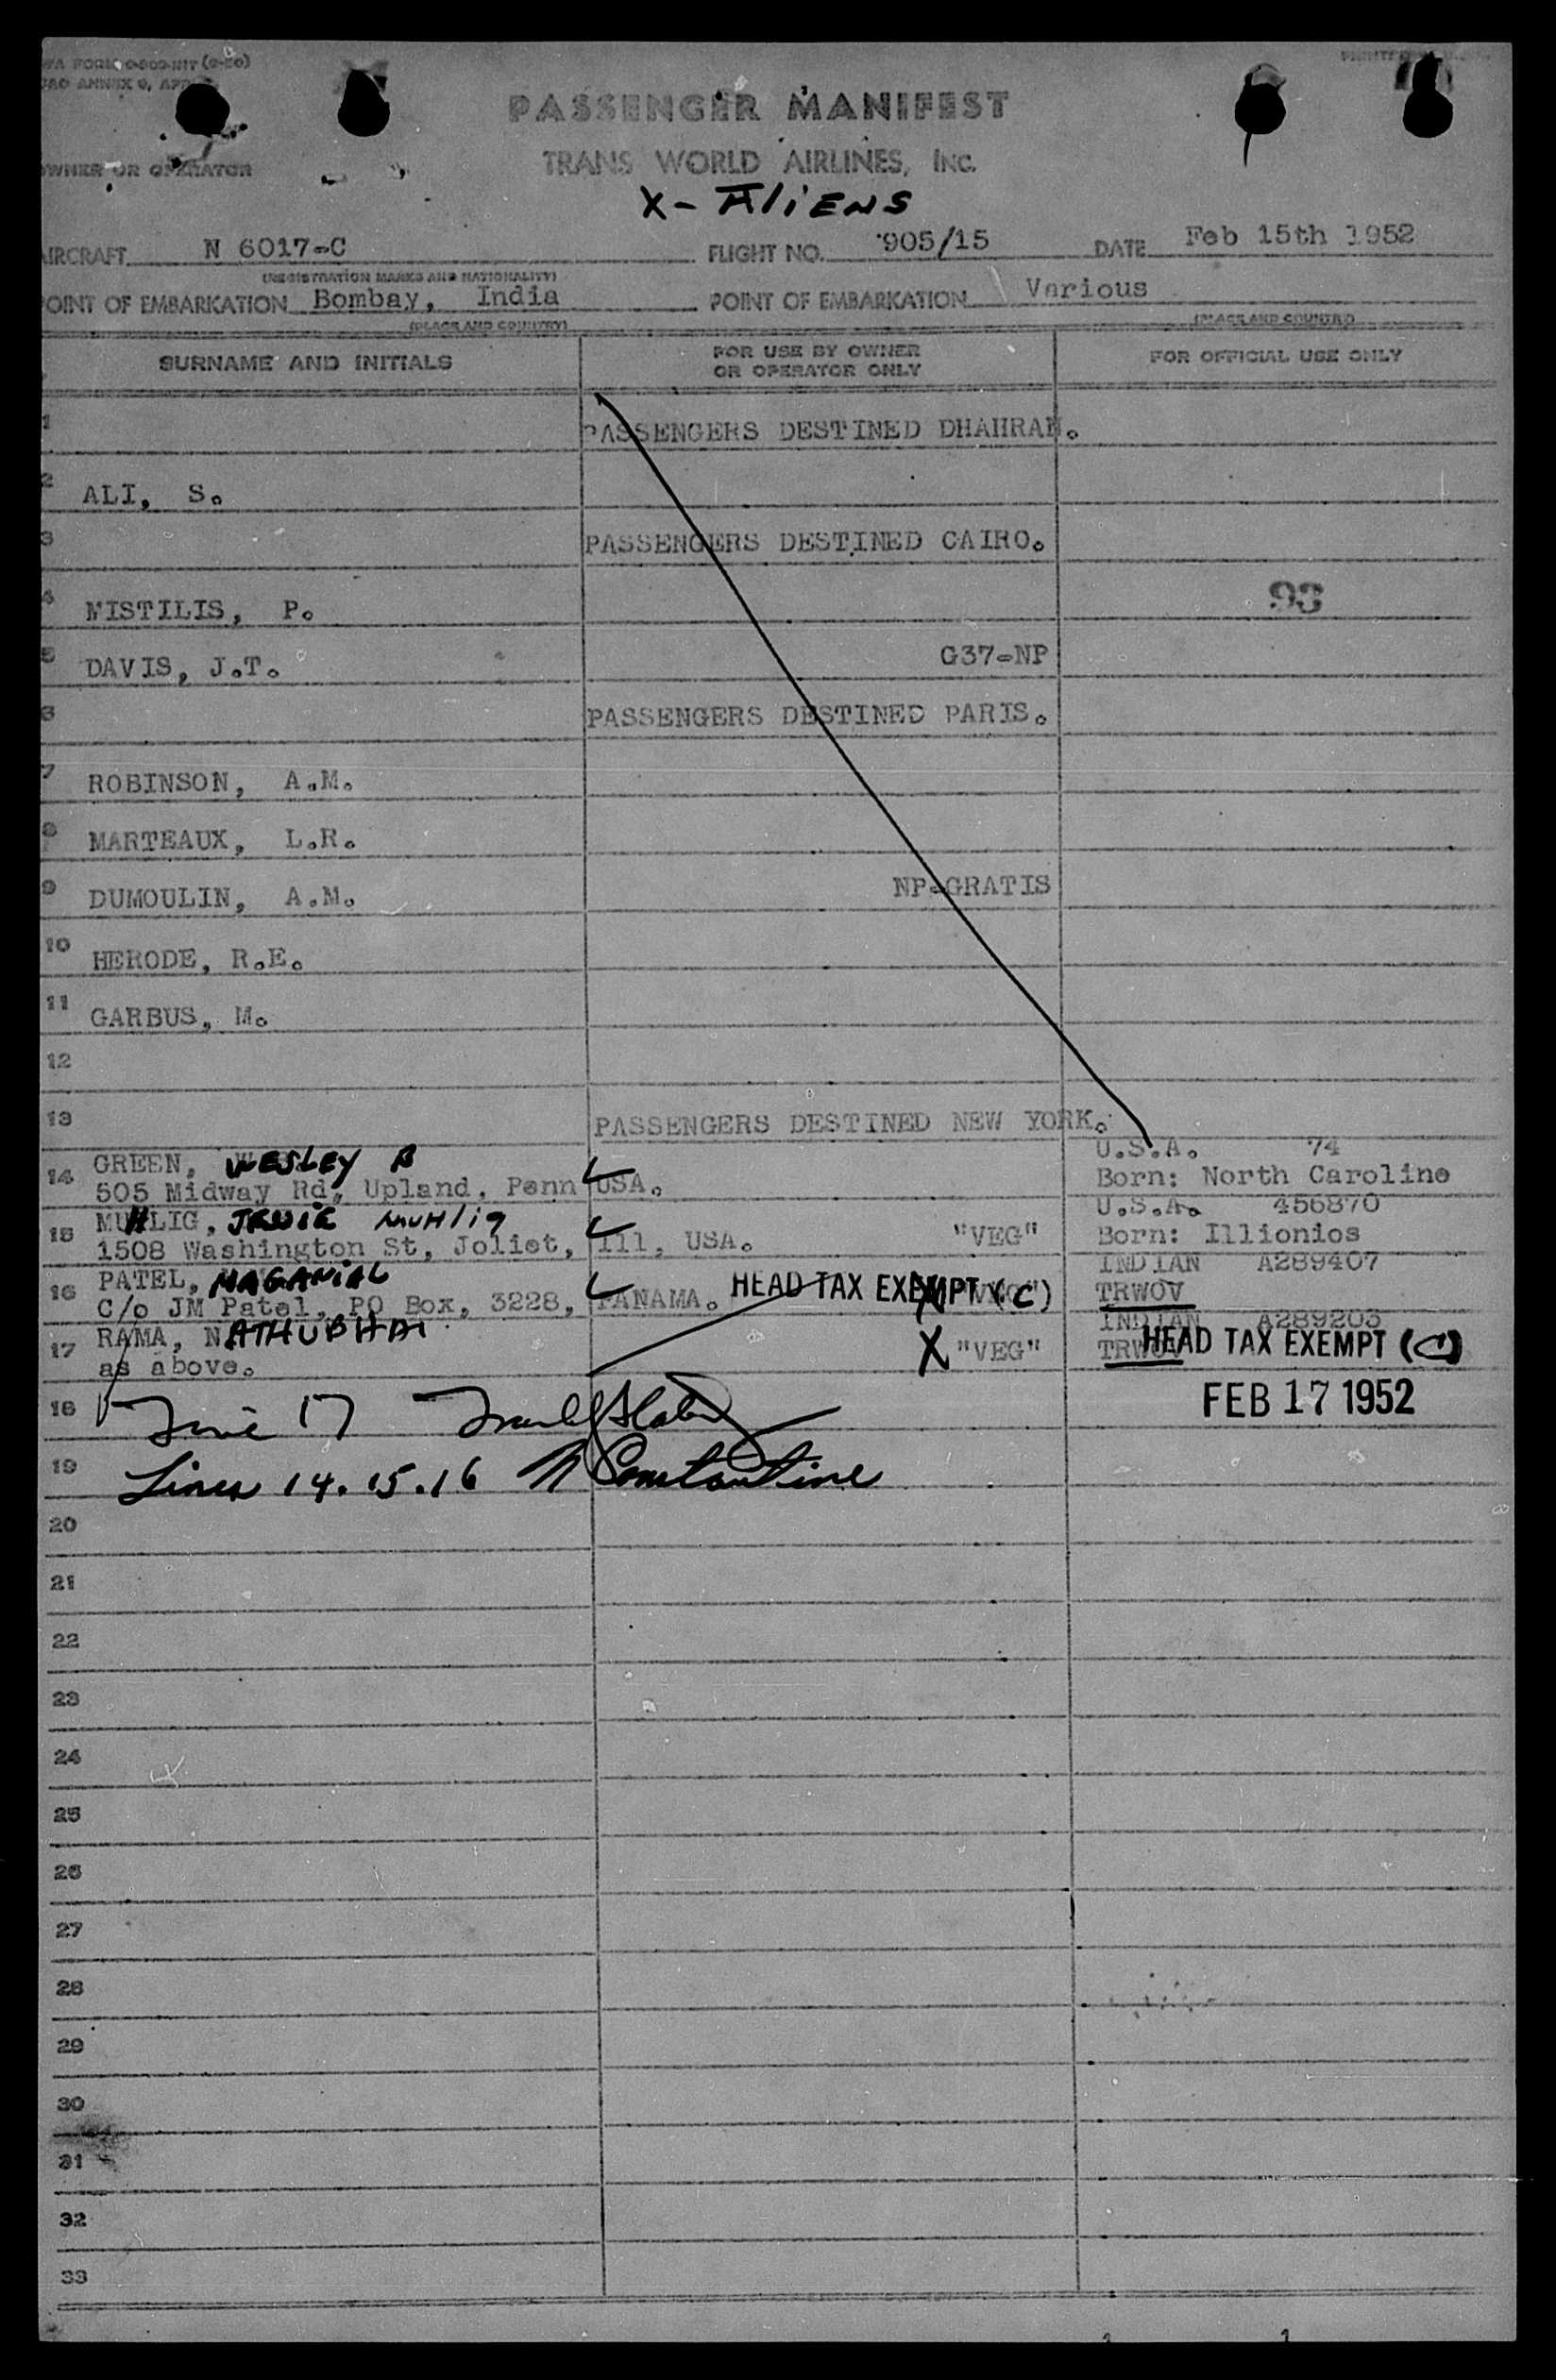 PASSENGER MANIFEST
OWNER OR OPERATOR
TRANS WORLD AIRLINES, INC.
X- AliENS
AIRCRAFT N 6017-C FLIGHT NO. 905/15 DATE Feb 15th 1952
(REGISTRATION MARKS AND NATIONALITY)
POINT OF EMBARKATION Bombay, India POINT OF EMBARKATION Various
(PLACE AND COUNTRY) (PLACE AND COUNTRY)
SURNAME AND INITIALS FOR USE BY OWNER OR OPERATOR ONLY FOR OFFICIAL USE ONLY
1 PASSENGERS DESTINED DHAHRAN.
2 ALI, S.
3 PASSENGERS DESTINED CAIRO.
4 MISTILIS, P. 93
5 DAVIS, J.T. G37-NP
6 PASSENGERS DESTINED PARIS.
7 ROBINSON, A.M.
8 MARTEAUX, L.R.
9 DUMOULIN, A.M. NP-GRATIS
10 HERODE, R.E.
11 GARBUS, M.
12
13 PASSENGERS DESTINED NEW YORK.
14 GREEN, WESLEY B U.S.A. 74
505 Midway Rd, Upland, Penn USA. Born: North Caroline
15 MUHLIG, JESSIE MUHlig U.S.A. 456870
1508 Washington St, Joliet, Ill, USA. "VEG" Born: Illionios
16 PATEL, MAGANLAL INDIAN A289407
C/o JM Patel, PO Box, 3228, PANAMA. HEAD TAX EXEMPT (C) TRWOV
17 RAMA, NATHUBHAI INDIAN A289203
as above. X "VEG" TRWOV HEAD TAX EXEMPT (C)
18 Line 17 FEB 17 1952
19 Lines 14.15.16 N Constantine
20
21
22
23
24
25
26
27
28
29
30
31
32
33